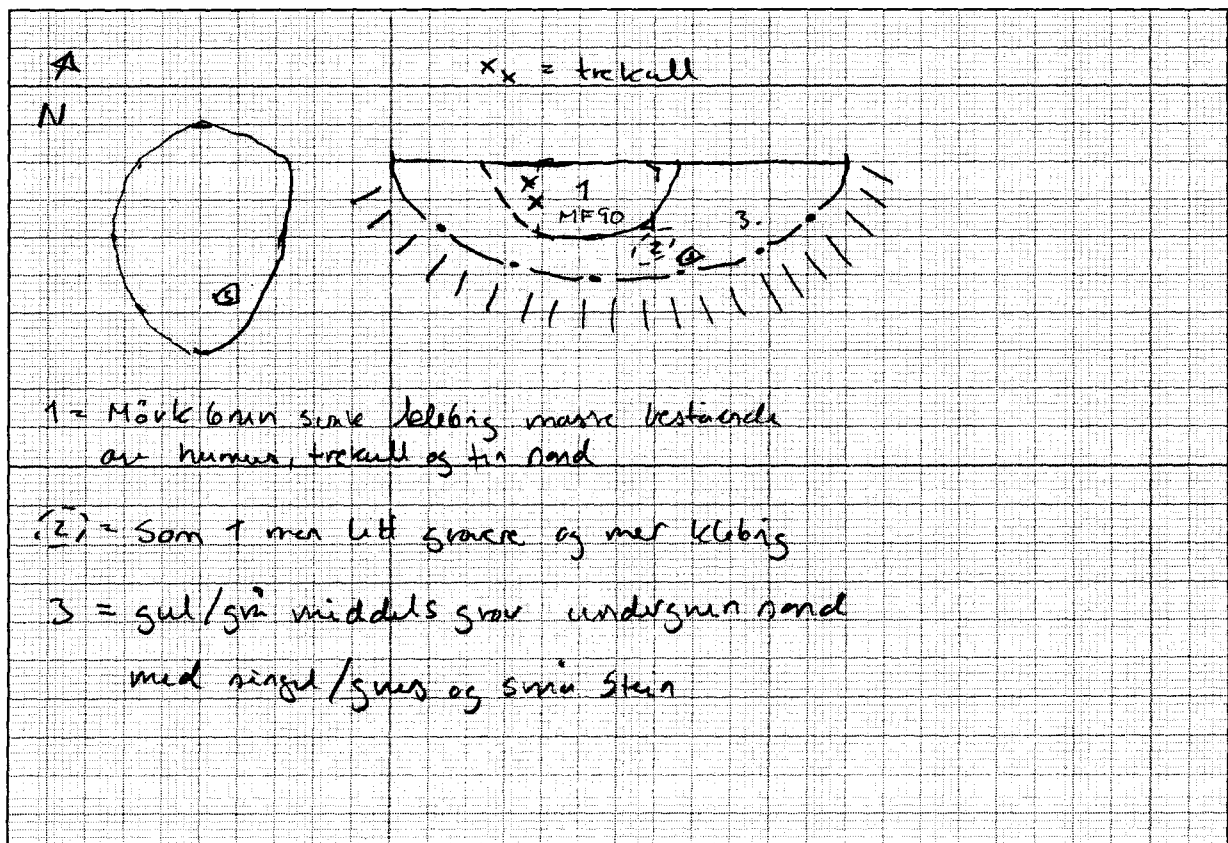 N
x x = trekull
1
MF90
2
3.
S
S
1 = Mörk brun svak klebrig masse bestående
av humus, trekull og fin sand
(2) = Som 1 men litt grovere og mer klebrig
3 = gul/grå middels grov undergrunn sand
med singel/grus og små stein